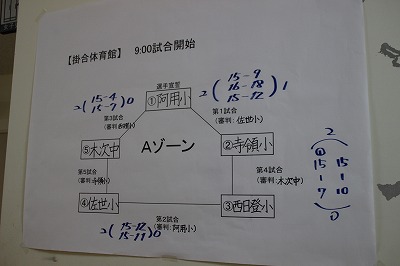 【掛合体育館】 9:00試合開始
2(15-4 15-7)0
選手宣誓
①阿用小
2(15-9 16-18 15-12)1
第3試合
第1試合
(審判:佐世小)
⑤木次中
Aゾーン
②寺領小
第5試合
第4試合
(審判:木次中)
2(15-7 15-10)0
④佐世小
③西日登小
第2試合
(審判:阿用小)
2(15-12 15-11)0